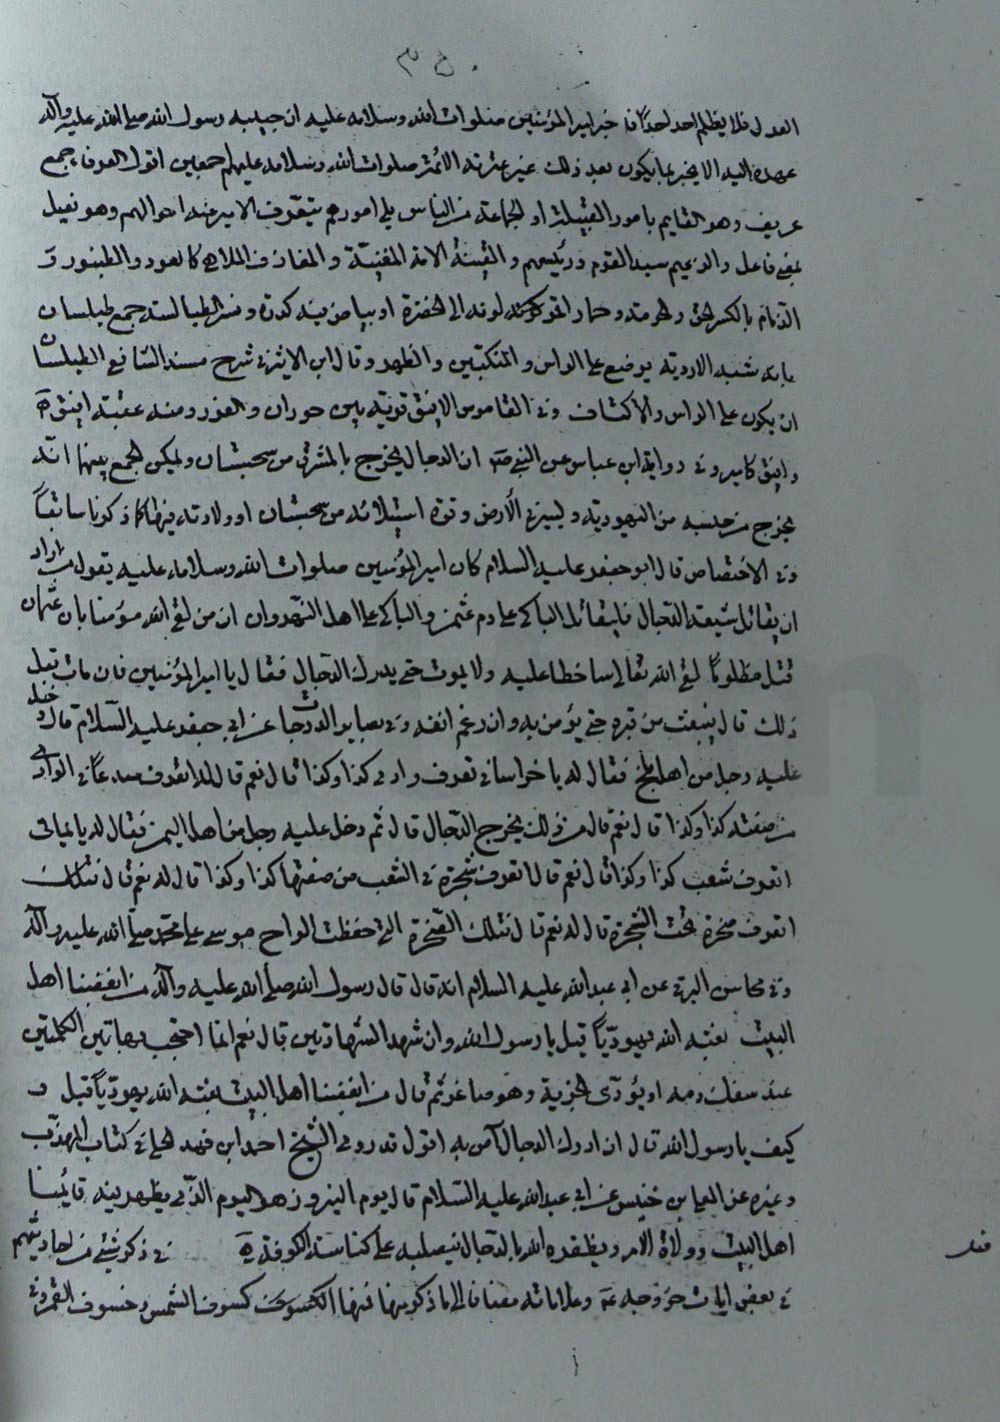 العدل فلا يظلم احد احدًا فا خبر امير المؤمنين صلوات الله وسلامه عليه ان حبيبه رسول الله صلى الله عليه وآله
عهد اليه الا يخبر بما يكون بعد ذلك غير عترته الائمة صلوات الله وسلامه عليهم اجمعين اقول العرفاء جمع
عريف وهو القايم بامور القبيلة او الجماعة من الناس يلي امورهم يتعرف الامير منه احوالهم وهو فعيل
بمعنى فاعل والزعيم سيد القوم ورئيسهم والقينة الامة المغنية والمعازف الملاهي كالعود والطنبور و
الذمام بالكسر الحق والحرمة وحمار اقمر لونه الى الخضرة او بياض فيه كدرة والطيالسة جمع طيلسان
بانه شبه الاردية يوضع على الراس والمنكبين والظهر وقال ابن الاثير في شرح مسند الشافعي الطيلسان
ان يكون على الراس والاكتاف وفي القاموس الافيق قرية بين حوران والغور ومنه عقبة افيق
وافيق كامير وفي رواية ابن عباس عن النبي ص ان الدجال يخرج بالمشرق من سجستان ويمكن الجمع بينهما انه
يخرج من حبسه من اليهودية ويسير في الأرض وقوة استيلائه من سجستان او ولادته فيها كما ذكرنا سابقاً
وفي الاختصاص قال ابو جعفر عليه السلام كان امير المؤمنين صلوات الله وسلامه عليه يقول من اراد
ان يقاتل شيعة الدجال فليقاتل الباكي على دم عثمن والباكي على اهل النهروان ان من لقي الله مؤمنا بان عثمان
قتل مظلوماً لقي الله تعالى ساخطا عليه ولا يموت حتى يدرك الدجال فقال يا امير المؤمنين فان مات قبل
ذلك قال يبعث من قبره حتى يؤمن به وان رغم انفه وفي بصاير الدرجات عن ابي جعفر عليه السلام قال دخل
عليه رجل من اهل بلخ فقال له يا خراساني تعرف وادي كذا وكذا قال نعم قال له اتعرف صدعاً في الوادي
من صفته كذا وكذا قال نعم قال من ذلك يخرج الدجال قال ثم دخل عليه رجل من اهل اليمن فقال له يا يماني
اتعرف شعب كذا وكذا قال نعم قال اتعرف شجرة في الشعب من صفتها كذا وكذا قال له نعم قال
اتعرف صخرة تحت الشجرة قال له نعم قال فتلك الصخرة التي حفظت الواح موسى على محمد صلى الله عليه وآله
وفي محاسن البرقي عن ابي عبد الله عليه السلام انه قال قال رسول الله صلى الله عليه وآله من ابغضنا اهل
البيت بعثه الله يهودياً قيل يا رسول الله وان شهد الشهادتين قال نعم انما احتجب بهاتين الكلمتين
عند سفك دمه او يؤدى الجزية وهو صاغر ثم قال من ابغضنا اهل البيت بعثه الله يهودياً قيل و
كيف يا رسول الله قال ان ادرك الدجال آمن به اقول قد روى الشيخ احمد ابن فهد الحلي في كتاب المهذب
وغيره عن المعلى بن خنيس عن ابي عبد الله عليه السلام قال يوم النيروز هو اليوم الذي يظهر فيه قائمنا
اهل البيت وولاة الامر ويظفره الله بالدجال فيصلبه على كناسة الكوفة في ذكر شيء من احاديثهم
في بعض ايات خروجه ع وعلاماته مضافا الى ما ذكر منها فمنها الكسوف كسوف الشمس وخسوف القمر وفي